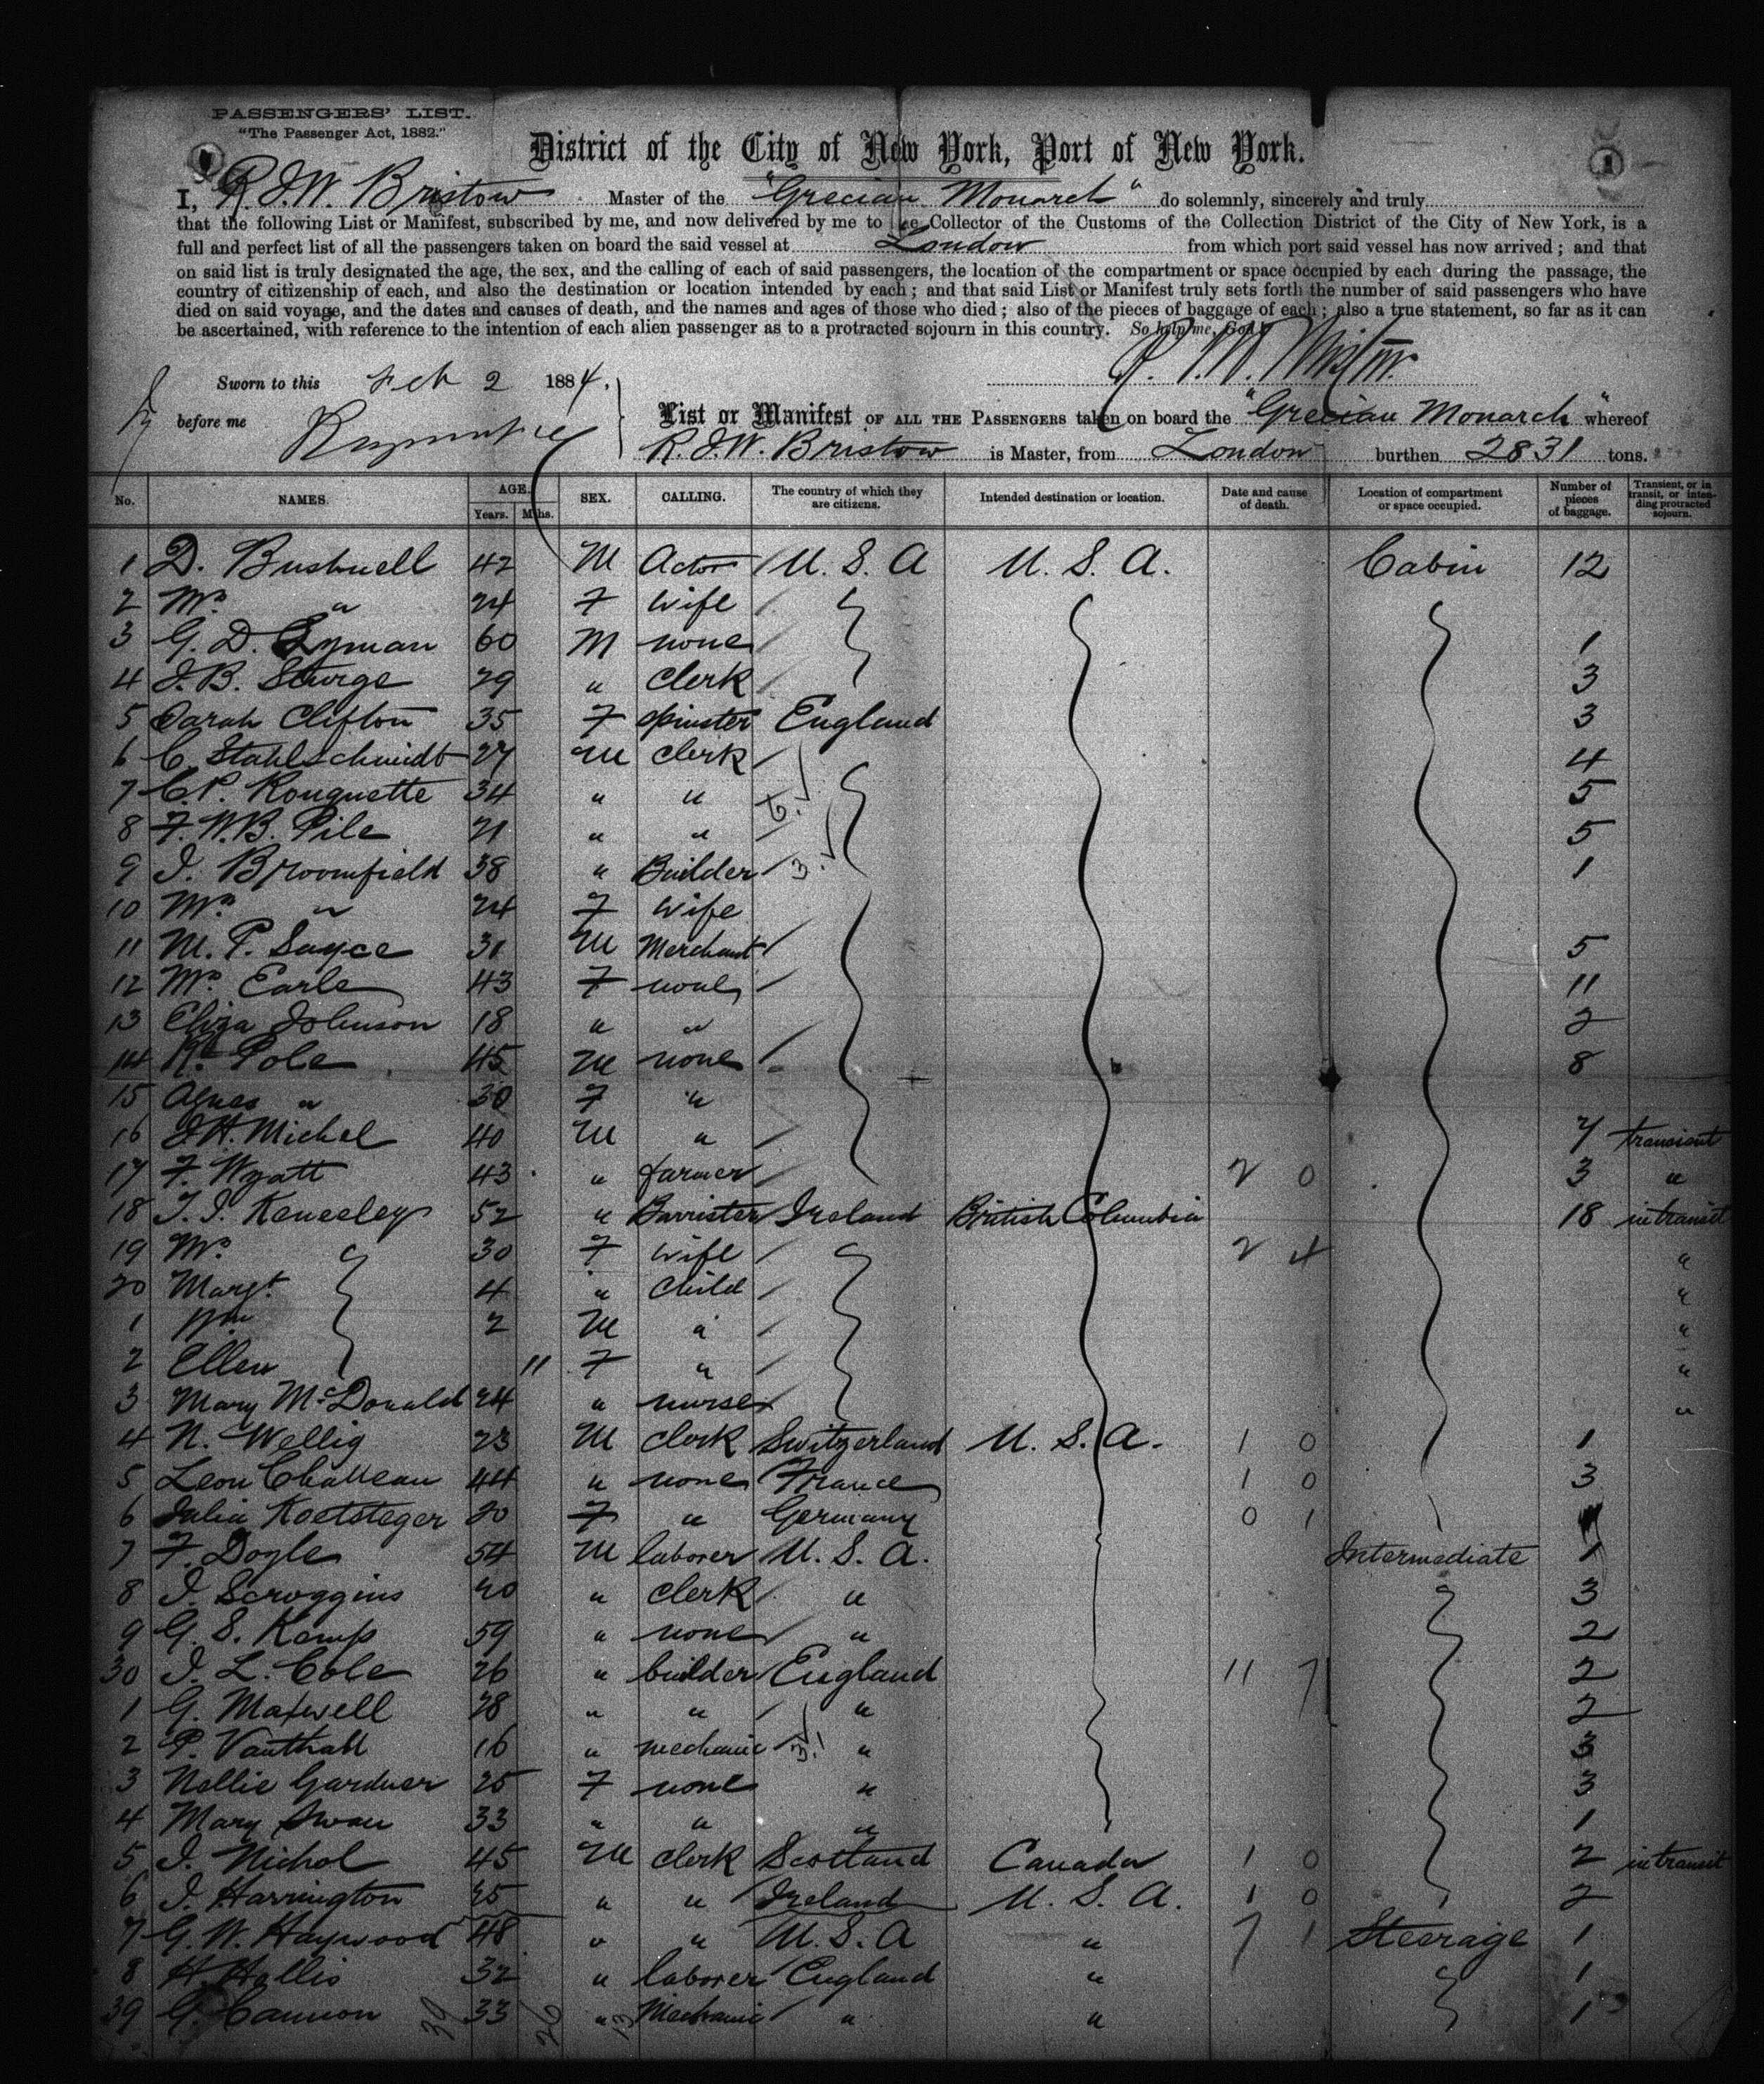 PASSENGERS' LIST.
"The Passenger Act, 1882."
1
District of the City of New York, Port of New York.
I, R. J. W. Bristow Master of the "Grecian Monarch" do solemnly, sincerely and truly
that the following List or Manifest, subscribed by me, and now delivered by me to the Collector of the Customs of the Collection District of the City of New York, is a
full and perfect list of all the passengers taken on board the said vessel at London from which port said vessel has now arrived; and that
on said list is truly designated the age, the sex, and the calling of each of said passengers, the location of the compartment or space occupied by each during the passage, the
country of citizenship of each, and also the destination or location intended by each; and that said List or Manifest truly sets forth the number of said passengers who have
died on said voyage, and the dates and causes of death, and the names and ages of those who died; also of the pieces of baggage of each; also a true statement, so far as it can
be ascertained, with reference to the intention of each alien passenger as to a protracted sojourn in this country. So help me, God.
Sworn to this Feb 2 1884.
before me
List or Manifest OF ALL THE PASSENGERS taken on board the "Grecian Monarch" whereof
R. J. W. Bristow is Master, from London burthen 2831 tons.
No. NAMES. AGE. Years. Mths. SEX. CALLING. The country of which they are citizens. Intended destination or location. Date and cause of death. Location of compartment or space occupied. Number of pieces of baggage. Transient, or in transit, or intending protracted sojourn.
1 D. Bushnell 42 M Actor U. S. A U. S. A. Cabin 12
2 Mrs " 24 F wife
3 G. D. Lyman 60 M none 1
4 J. B. Sturge 29 " clerk 3
5 Sarah Clifton 35 F spinster England 3
6 C. Stahlschmidt 27 M clerk 4
7 C. P. Rouquette 34 " " 5
8 F. W. B. Pile 21 " " 5
9 J. Broomfield 38 " Builder 1
10 Mrs " 24 F wife
11 M. P. Sayce 31 M Merchant 5
12 Mrs Earle 43 F none 11
13 Eliza Johnson 18 " " 2
14 Rt Pole 45 M none 8
15 Agnes " 30 F "
16 J. H. Michel 40 M " 7 transient
17 F. Wyatt 43 " farmer 2 0 3 "
18 Keneeley 52 " Barrister Ireland British Columbia 18 in transit
19 Mrs 30 F wife 2 4 "
20 Margt. 4 " Child "
1 Wm 2 M " "
2 Ellen 11 F " "
3 Mary McDonald 24 " nurse "
4 N. Wellig 23 M clerk Switzerland U. S. A. 1 0 1
5 Leon Chatteau 44 " none France 1 0 3
6 Julia Koetsteger 20 F " Germany 0 1
7 F. Doyle 54 M laborer U. S. A. Intermediate 1
8 J. Scroggins 20 " clerk " 3
9 G. S. Kemp 59 " none " 2
30 J. L. Cole 26 " builder England 11 7 2
1 G. Maxwell 28 " " " 2
2 P. Vauthall 16 " mechanic " 3
3 Nellie Gardner 25 F none " 3
4 Mary Swan 33 " " " 1
5 J. Nichol 45 M clerk Scotland Canada 1 0 2 in transit
6 J. Harrington 25 " " Ireland U. S. A. 1 0 2
7 G. W. Haywood 48 " " U. S. A " 7 1 Steerage 1
8 H. Hollis 32 " laborer England " 1
39 G. Cannon 33 " Mechanic " " 1
39 26 13